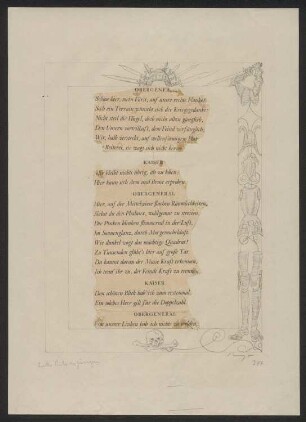 OBERGENERAL
Schau hier, mein Fürst, auf unsre rechte Flanke!
Solch ein Terrain wünscht sich der Kriegsgedanke:
Nicht steil die Hügel, doch nicht allzu gänglich,
Den Unsern vorteilhaft, dem Feind verfänglich,
Wir, halb versteckt, auf wellenförmigem Plan;
Die Reiterei, sie wagt sich nicht heran.
KAISER
Mir bleibt nichts übrig, als zu loben;
Hier kann sich Arm und Brust erproben.
OBERGENERAL
Hier, auf der Mittelwiese flachen Räumlichkeiten,
Siehst du den Phalanx, wohlgemut zu streiten.
Die Piken blinken flimmernd in der Luft,
Im Sonnenglanz, durch Morgennebelduft.
Wie dunkel wogt das mächtige Quadrat!
Zu Tausenden glüht's hier auf große Tat.
Du kannst daran der Masse Kraft erkennen,
Ich trau' ihr zu, der Feinde Kraft zu trennen.
KAISER
Den schönen Blick hab' ich zum erstenmal.
Ein solches Heer gilt für die Doppelzahl.
OBERGENERAL
Von unsrer Linken hab' ich nichts zu melden,